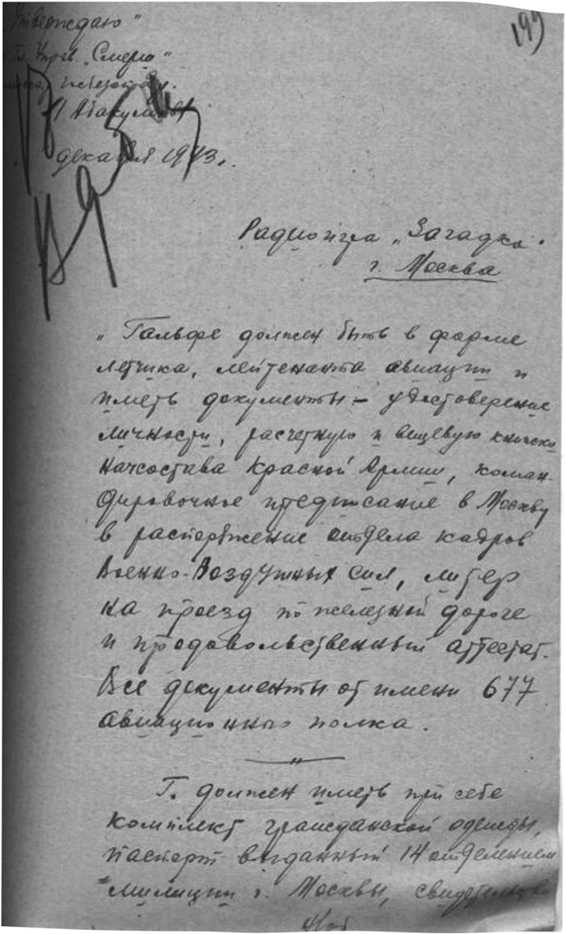 "Утверждаю"
Упр. "Смерш"
Абакумов
декабря 1943.
199
Радиоигра "Загадка".
г. Москва
"Гальфе должен быть в форме
летчика, лейтенанта авиации и
иметь документы – удостоверение
личности, расчетную и вещевую книжки
начсостава Красной Армии, коман-
дировочное предписание в Москву
в распоряжение отдела кадров
Военно-Воздушных Сил, литер
на проезд по железной дороге
и продовольственный аттестат.
Все документы от имени 677
авиационного полка.
Г. должен иметь при себе
комплект гражданской одежды,
паспорт выданный 14 отделением
милиции г. Москвы, свидетельство